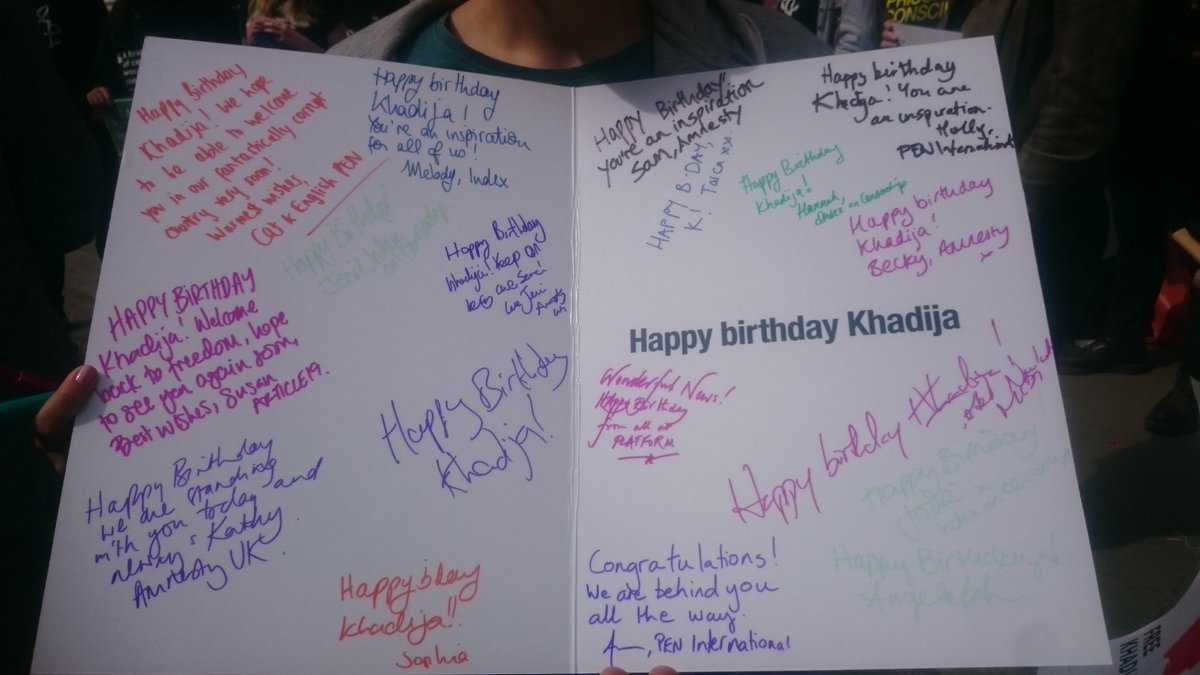 Happy Birthday
Khadija! We hope
to be able to welcome
you in our fantastically corrupt
country very soon!
Warmest wishes,
Cat x English PEN
Happy birthday
Khadija!
You're an inspiration
for all of us!
Melody, Index
Happy Birthday
Happy Birthday
Khadija! Keep on
HAPPY BIRTHDAY
Khadija! Welcome
back to freedom, hope
to see you again soon,
Best Wishes, Susan
ARTICLE 19.
Happy Birthday
Khadija!
Happy Birthday
we are standing
with you today and
always. Kathy
Amnesty UK
Happy b'day
Khadija!!
Sophia
Happy Birthday
you're an inspiration
Sam, Amnesty
HAPPY B-DAY,
K! Taica xx
Happy birthday
Khadija! You are
an inspiration.
Holly,
PEN International
Happy Birthday
Khadija!
Hannah,
Index on Censorship
Happy birthday
Khadija!
Becky, Amnesty
x
Happy birthday Khadija
Wonderful News!
Happy Birthday
from all at
PLATFORM
Happy birthday Khadija!
Happy Birthday
Jodie x
Index on Censorship
Happy Birthday!
Congratulations!
We are behind you
all the way.
, PEN International
FREE
KHAD